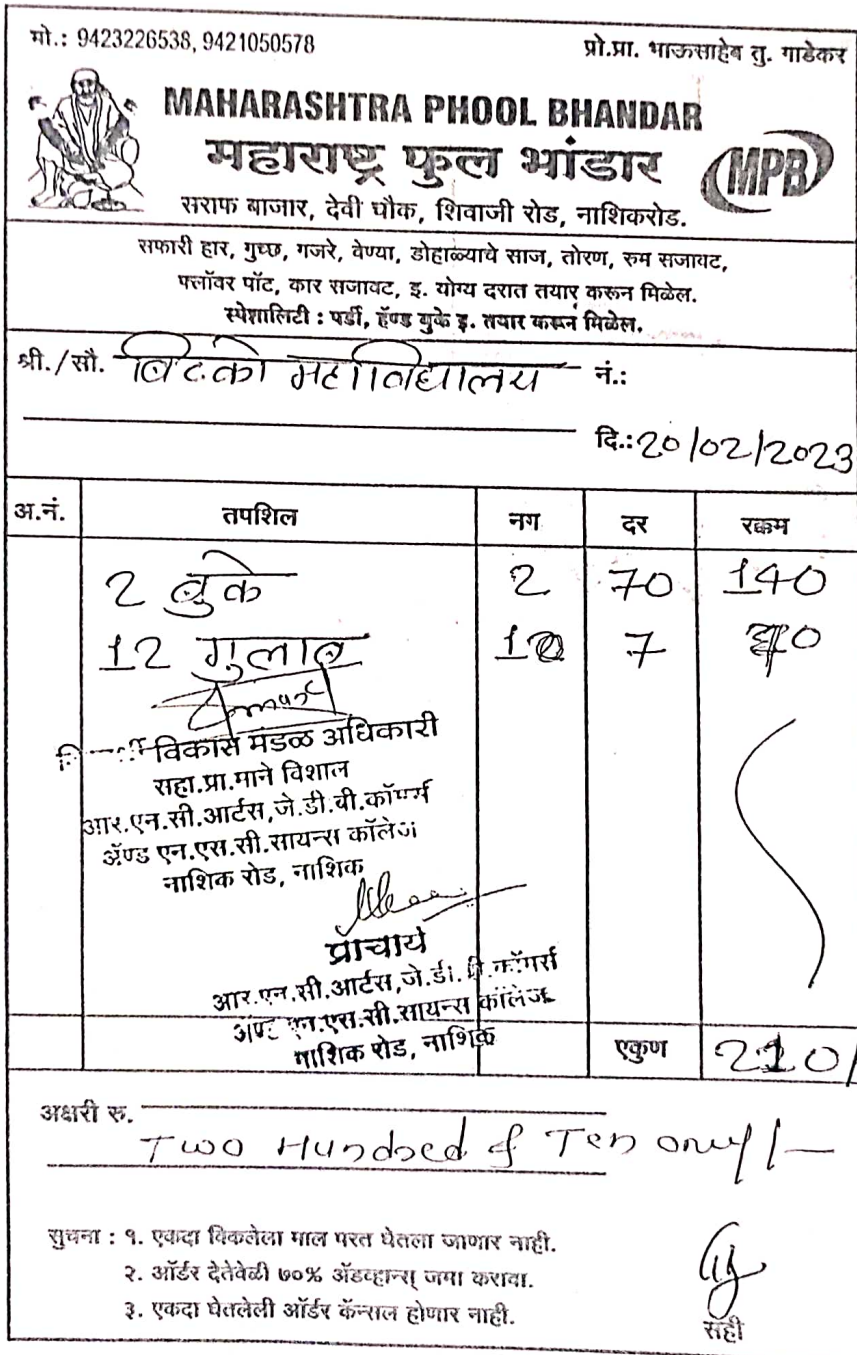 मो.: 9423226538, 9421050578
प्रो.प्रा. भाऊसाहेब तु. गाडेकर
MAHARASHTRA PHOOL BHANDAR
महाराष्ट्र फुल भांडार
MPB
सराफ बाजार, देवी चौक, शिवाजी रोड, नाशिकरोड.
सफारी हार, गुच्छ, गजरे, वेण्या, डोहाळ्याचे साज, तोरण, रुम सजावट,
फ्लॉवर पॉट, कार सजावट, इ. योग्य दरात तयार करून मिळेल.
स्पेशालिटी : पर्डी, हॅण्ड बुके इ. तयार करून मिळेल.
श्री./सौ. बिटको महाविद्यालय नं.:
दि.: 20/02/2023
अ.नं. तपशिल नग दर रक्कम
2 बुके 2 70 140
12 गुलाब 7
विकास मंडळ अधिकारी
सहा.प्रा.माने विशाल
आर.एन.सी.आर्टस,जे.डी.बी.कॉमर्स
अॅण्ड एन.एस.सी.सायन्स कॉलेज
नाशिक रोड, नाशिक
प्राचार्य
आर.एन.सी.आर्टस,जे.डी.बी.कॉमर्स
अॅण्ड एन.एस.सी.सायन्स कॉलेज
नाशिक रोड, नाशिक
एकुण 210/
अक्षरी रु.
Two Hundred & Ten only/-
सुचना : १. एकदा विकलेला माल परत घेतला जाणार नाही.
२. ऑर्डर देतेवेळी ७०% अॅडव्हान्स् जमा करावा.
३. एकदा घेतलेली ऑर्डर कॅन्सल होणार नाही.
सही